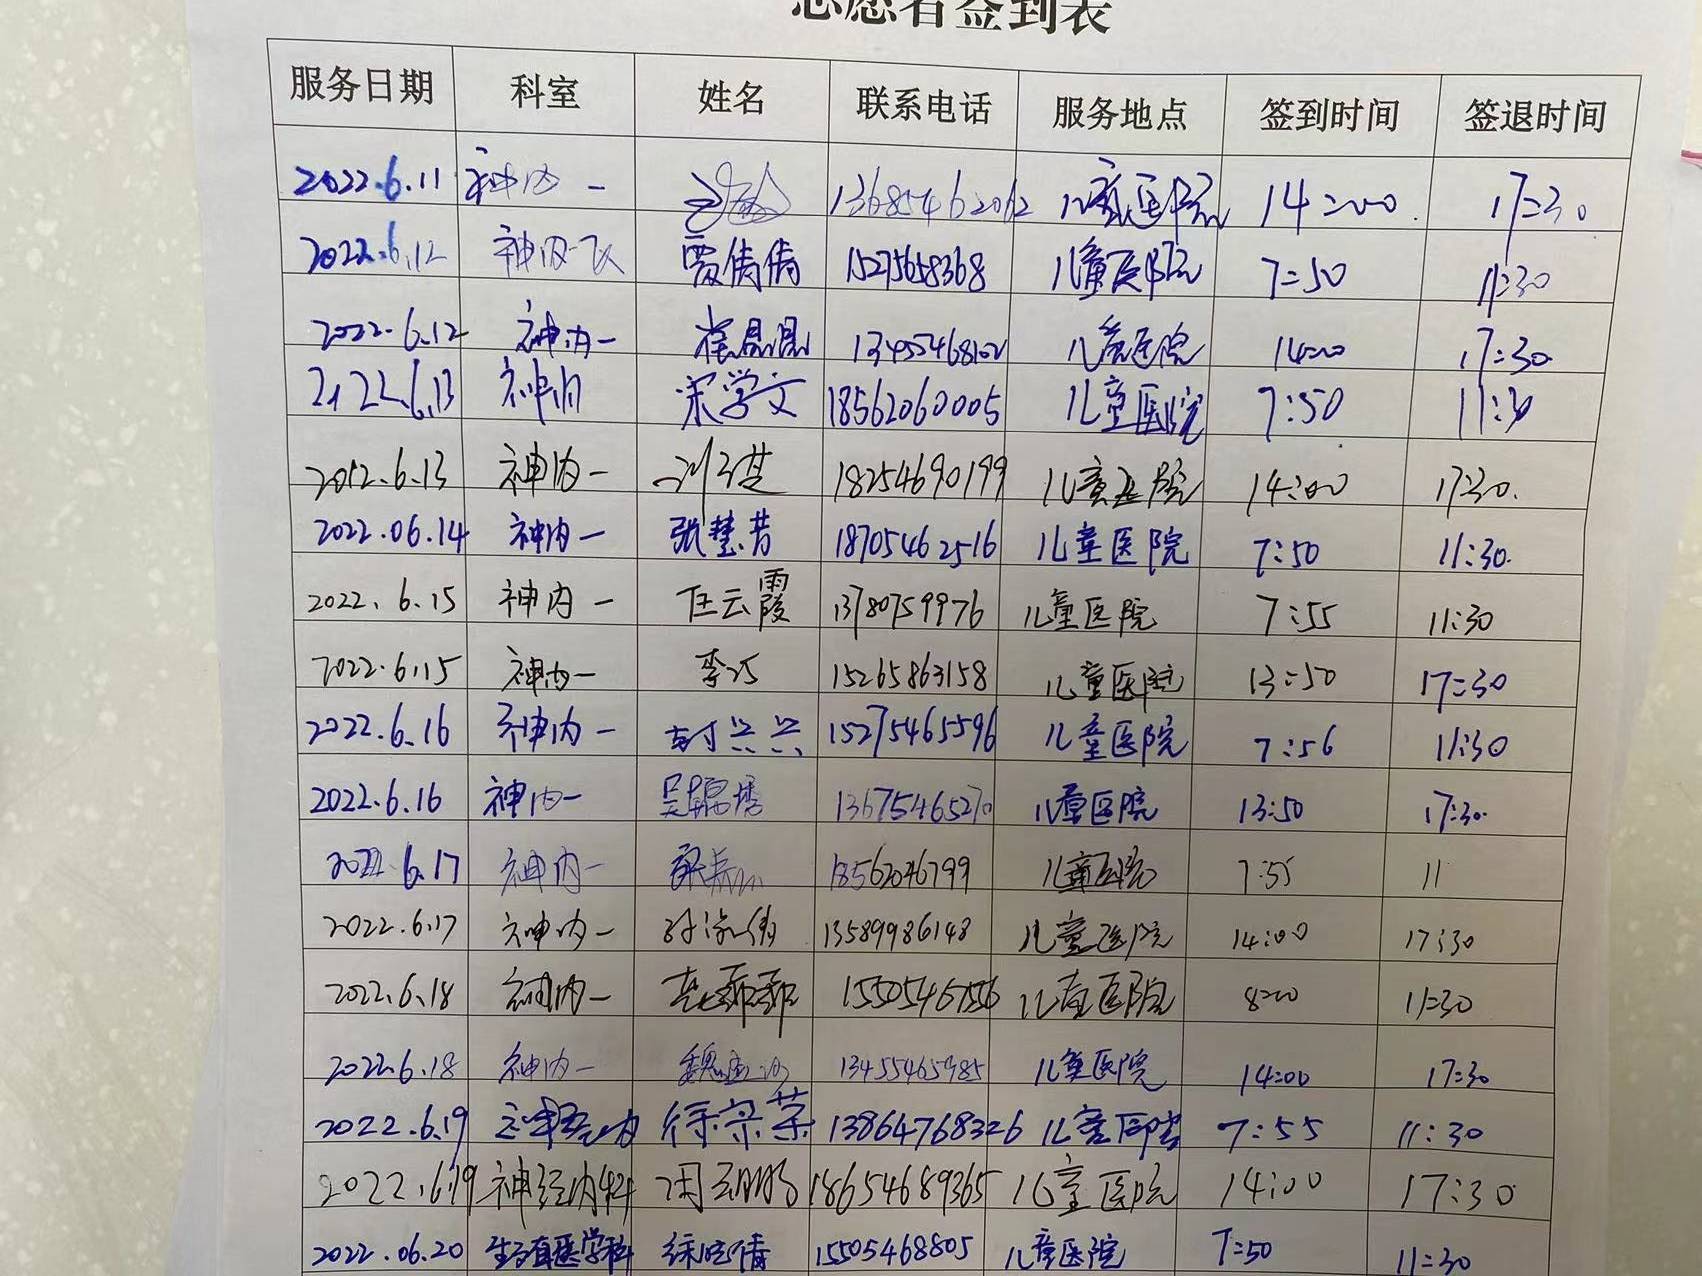 志愿者签到表
服务日期 科室 姓名 联系电话 服务地点 签到时间 签退时间
2022.6.11 神内一 13685462062 儿童医院 14:00 17:30
2022.6.12 神内一 贾倩倩 15275658368 儿童医院 7:50 11:30
2022.6.12 神内一 崔晶晶 儿童医院 14:00 17:30
2022.6.13 神内 宋学文 18562060005 儿童医院 7:50 11:30
2012.6.13 神内一 18254690199 儿童医院 14:00 17:30.
2022.06.14 神内一 张慧芳 18705462516 儿童医院 7:50 11:30.
2022.6.15 神内一 任云霞 13780759976 儿童医院 7:55 11:30
2022.6.15 神内一 李巧 15265863158 儿童医院 13:50 17:30
2022.6.16 神内一 封兴兴 15275465596 儿童医院 7:56 11:30
2022.6.16 神内一 13675465270 儿童医院 13:50 17:30.
2022.6.17 神内一 18562046799 儿童医院 7:55 11
2022.6.17 神内一 13589986143 儿童医院 14:00 17:30
2022.6.18 神内一 儿童医院 8:00 11:30
2022.6.18 神内一 13455465985 儿童医院 14:00 17:30
2022.6.19 徐宗英 13864768326 儿童医院 7:55 11:30
2022.6.19 神经内科 周 18654689365 儿童医院 14:00 17:30
2022.06.20 生殖医学科 15505468805 儿童医院 7:50 11:30